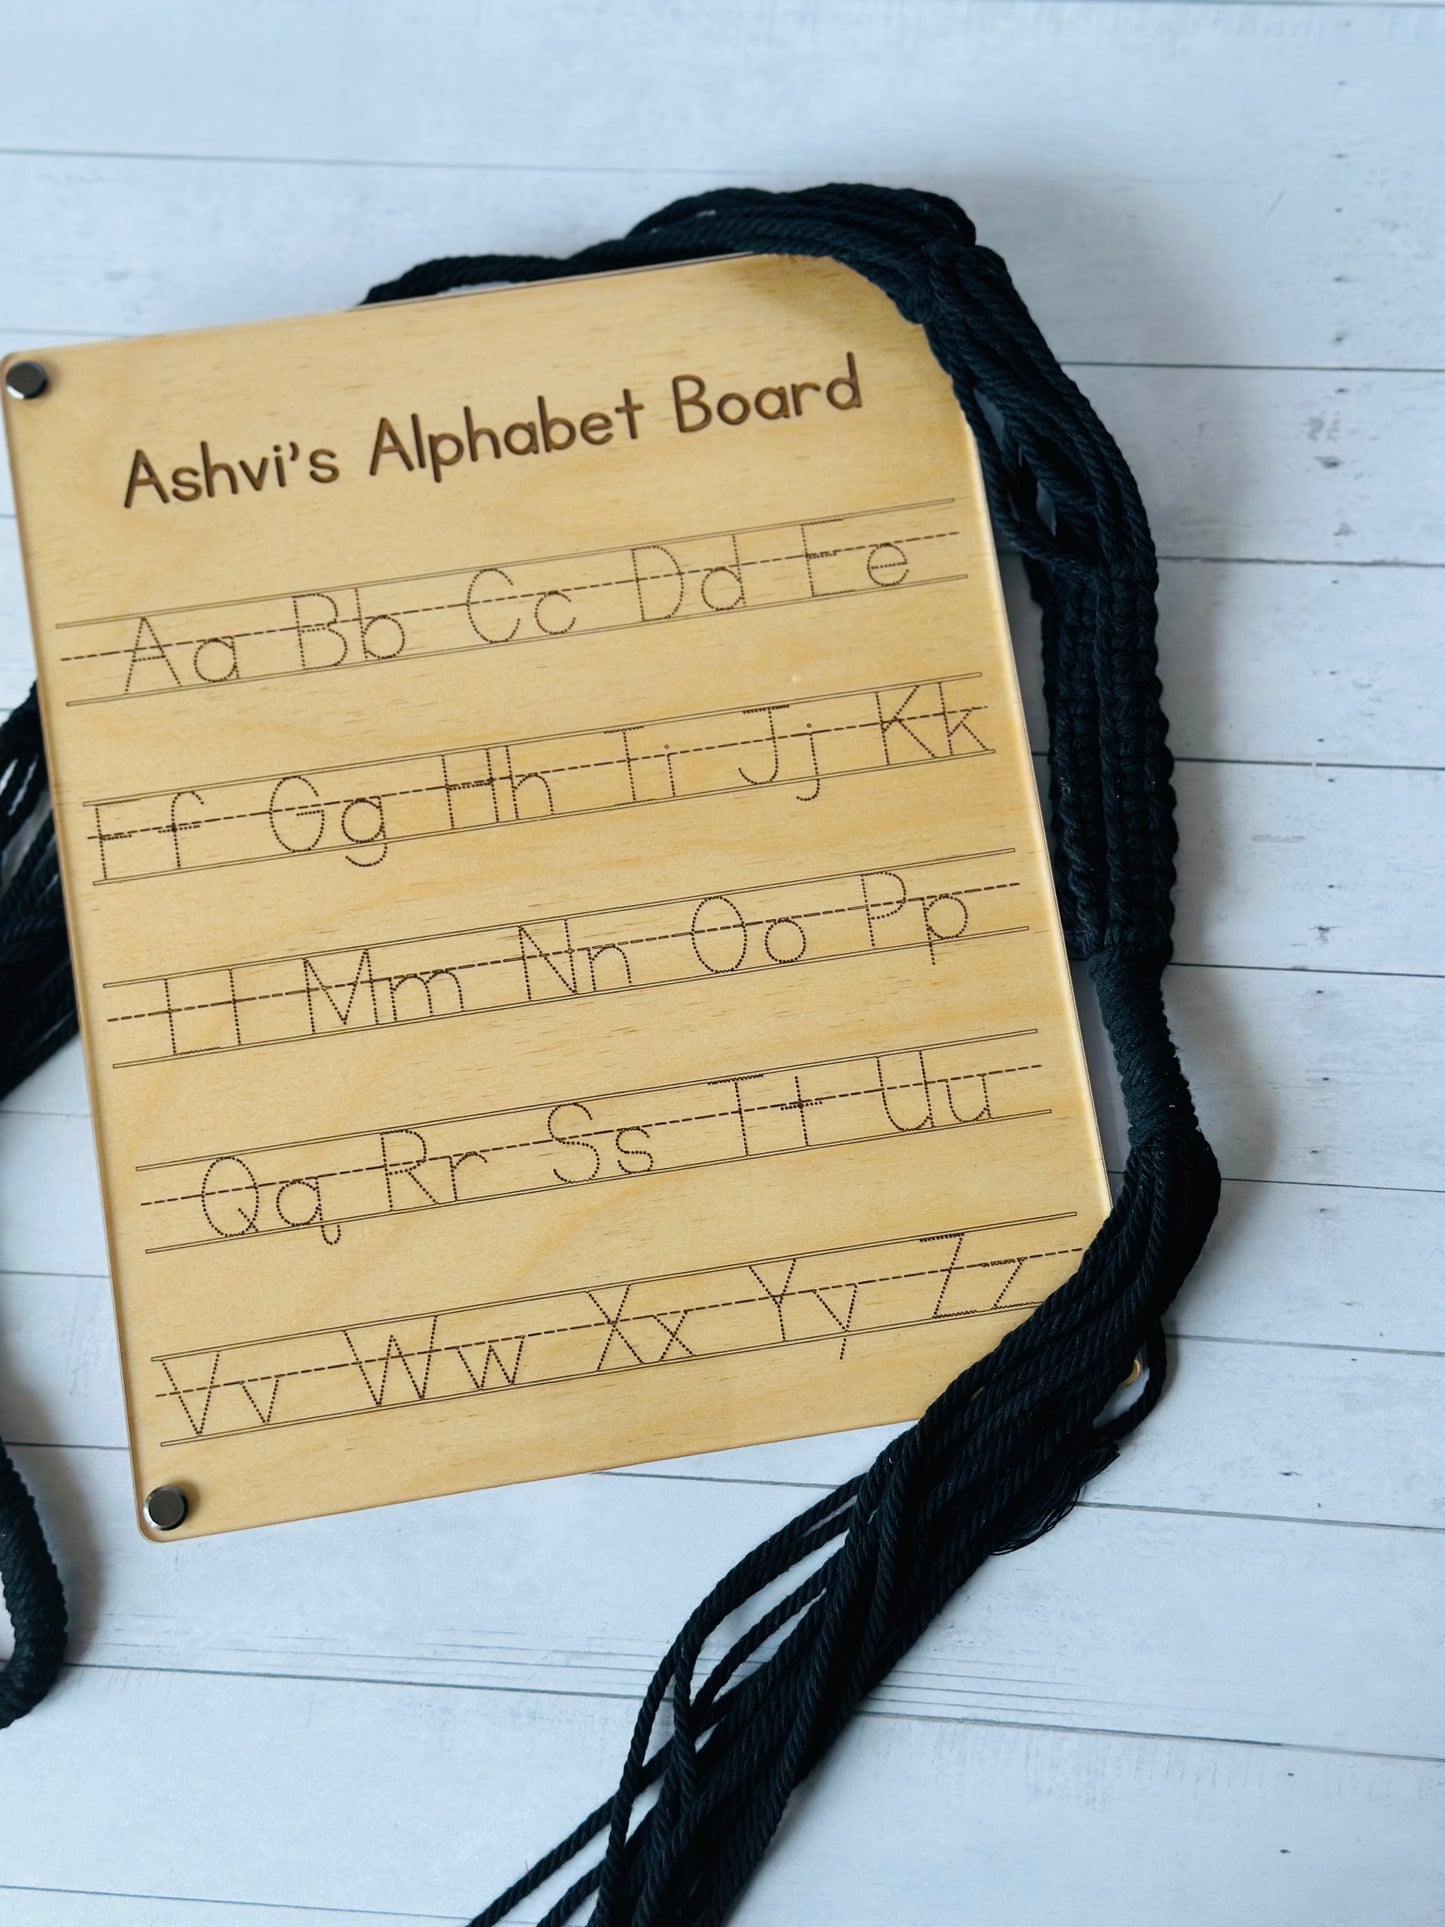 Ashvi's Alphabet Board
Aa Bb Cc Dd Ee
Ff Gg Hh Ii Jj Kk
Ll Mm Nn Oo Pp
Qq Rr Ss Tt Uu
Vv Ww Xx Yy Zz